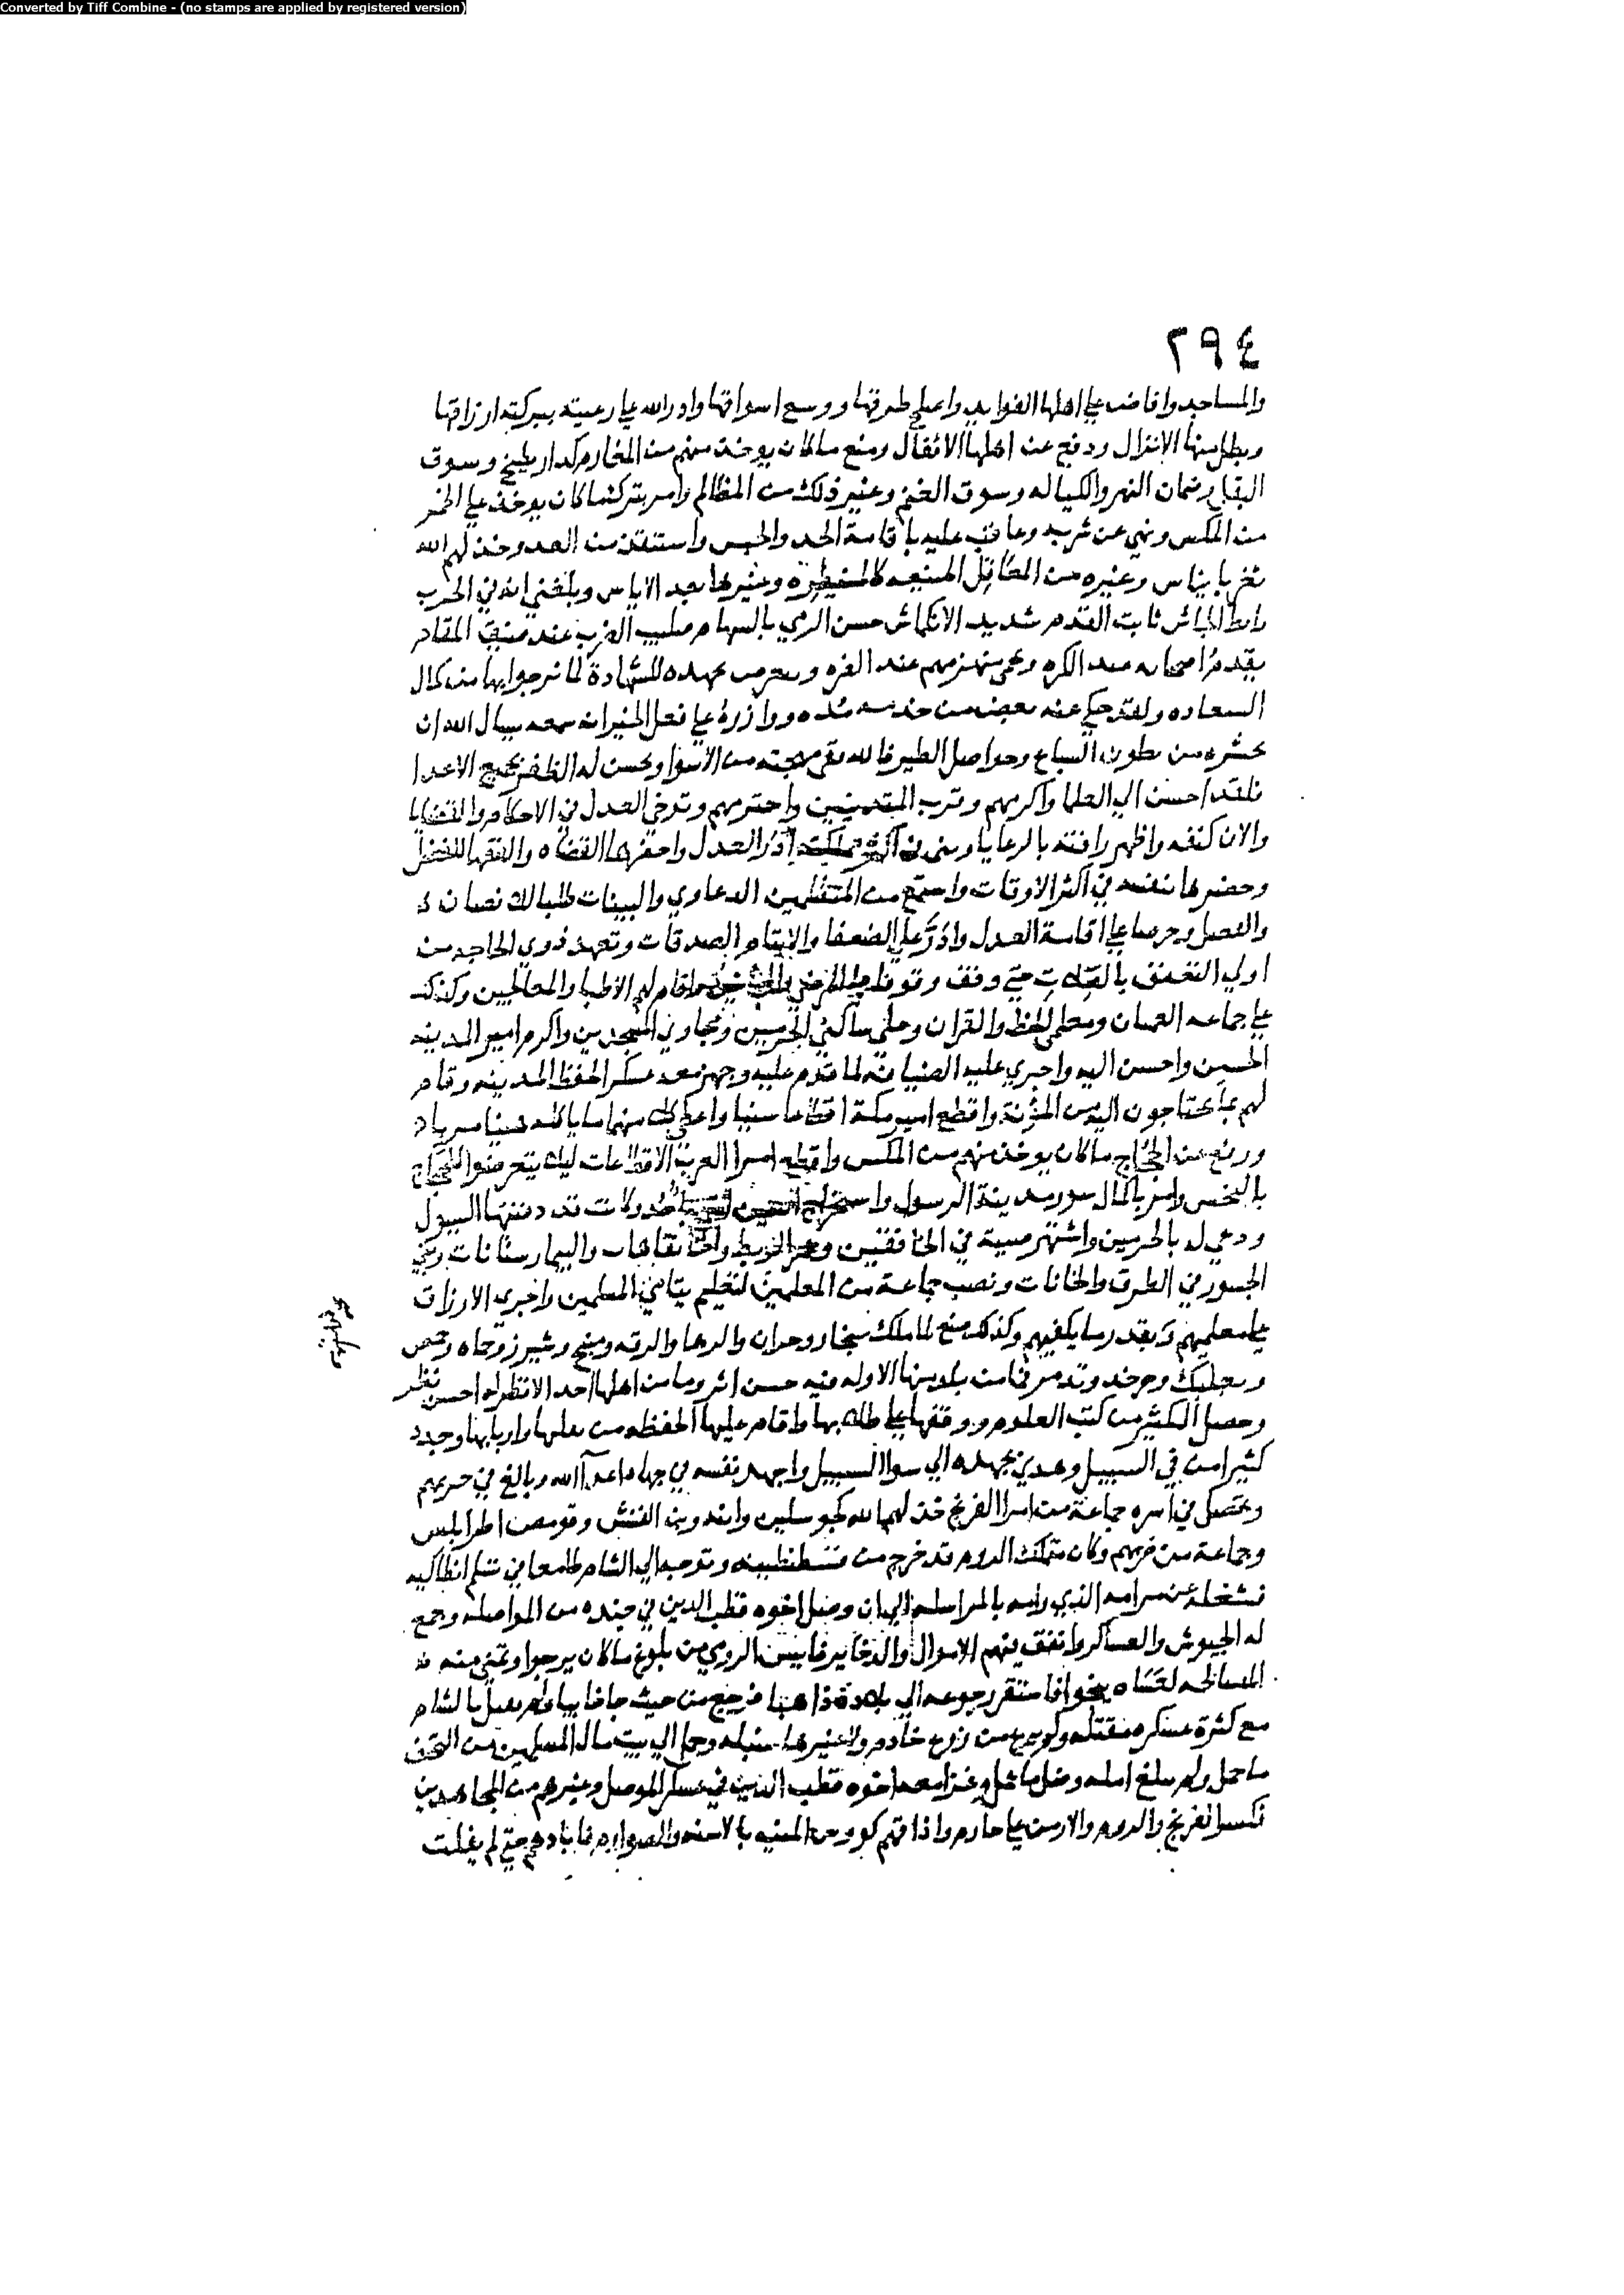 Converted by Tiff Combine - (no stamps are applied by registered version)
٢٩٤
والمساجد وافاض علي اهلها الفوايد واصلح طرقها ووسع اسواقها وادر الله علي رعيته ببركته ارزاقها
وبطل منها الانزال ورفع عن اهلها الاثقال ومنع ما كان يوخذ منهم من المغارم كدار بطيخ وسوق
البقل وضمان النهر والكياله وسوق الغنم وغير ذلك من المظالم وامر بترك ما كان يوخذ علي الخمر
من المكس ونهي عن شربه وعاقب عليه باقامة الحد والحبس واستنقذ من العدو خذلهم الله
ثغر بانياس وغيره من المعاقل المنيعه كالمنيطره وغيرها بعد الاياس وبلغني انه في الحرب
رابط الجاش ثابت القدم شديد الانكماش حسن الرمي بالسهام صليب الضرب عند ضيق المقام
يقدم اصحابه عند الكره ويحمي منهزمهم عند الفره ويتعرض بجهده للشهادة لما يرجوا بها من كمال
السعاده ولقد حكي عنه بعض من خدمه مده ووازره علي فعل الخير انه سمعه يسال الله ان
يحشره من بطون السباع وحواصل الطير فالله يقي مهجته من الاسوا ويحسن له الظفر بجميع الاعدا
فلقد احسن الي العلما واكرمهم وقرب المتدينين واحترمهم وتوخي العدل في الاحكام والقضايا
والان كنفه واظهر رافته بالرعايا وبني في اكثر مملكته ادر العدل واحضرها القضاه والفقها للفصل
وحضرها بنفسه في اكثر الاوقات واستمع من المتظلمين الدعاوي والبينات طلبا للانصاف
والفصل وحرصا علي اقامة العدل وادر علي الضعفا والايتام الصدقات وتعهد ذوي الحاجه من
اولي التعفف بالصلات حتي وقف وقوفا علي المرضي والمجانين واقام لهم الاطبا والمعالجين وكذلك
علي جماعه العميان ومعلمي الخط والقران وعلي ساكني الحرمين ومجاوري المسجدين واكرم امير المدينه
الحسين واحسن اليه واجري عليه الضيافه لما قدم عليه وجهز معه عسكرا لحفظ المدينه وقام
لهم بما يحتاجون اليه من المؤنة واقطع امير مكة اقطاعا سنيا واعطي كلا منهما ما ياكله هنيا مريا
ورفع عن الحجاج ما كان يوخذ منهم من المكس واقطع امرا العرب الاقطاعات ليلا يتعرضوا للحجاج
بالنخس وامر باكمال سور مدينة الرسول واستخراج العين التي باحد وكانت قد دفنتها السيول
ودعي له بالحرمين واشتهر صيته في الخافقين وعمر الربط والخانقاهات والبيمارستانات وبني
الجسور في الطرق والخانات ونصب جماعة من المعلمين لتعليم يتامي المسلمين واجري الارزاق
علي معلميهم وبقدر ما يكفيهم وكذلك صنع لما ملك سنجار وحران والرها والرقه ومنبج وشيرز وحماه وحمص
وبعلبك وصرخد وتدمر فما من بلد منها الا وله فيه حسن اثر وما من اهلها احد الا نظر له احسن نظر
وحصل الكثير من كتب العلوم ووقفها علي طلابها واقام عليها الحفظه من نقلها واربابها وجدد
كثيرا من في السبيل وهدي بجهده الي سوا السبيل واجهد نفسه في جهاد اعدا الله وبالغ في حربهم
وتحصل في اسره جماعة من امرا الفرنج خذلهم الله كجوسلين وابنه وبن الفنش وقومص اطرابلس
وجماعة من ضربهم وكان متملك الروم قد خرج من قسطنطينيه وتوجه الي الشام طامعا في تسلم انطاكيه
فشغله عن مرامه الذي رامه بالمراسله الي ان وصل اخوه قطب الدين في جنده من المواصله وجمع
له الجيوش والعساكر وانفق فيهم الاموال والذخاير فايس الرومي من بلوغ ما كان يرجوا وتمني منه
المصالحه لعساه ينجوا فاستقر رجوعه الي بلاده ذاهبا فرجع من حيث جا خايبا ولم يقتل بالشام
مع كثرة عسكره مقتله ولم يرع من زرع حارم ولا غيرها سنبله وحمل الي بيت مال المسلمين من التحف
ما حمل ولم يبلغ امله وضل ما عمل وغزا معه اخوه قطب الدين في عسكر الموصل وغيرهم من المجاهدين
فكسر الفرنج والروم والارمن علي حارم واذاقهم كووس المنيه بالاسنه والصوارم فابادهم حتي لم يفلت